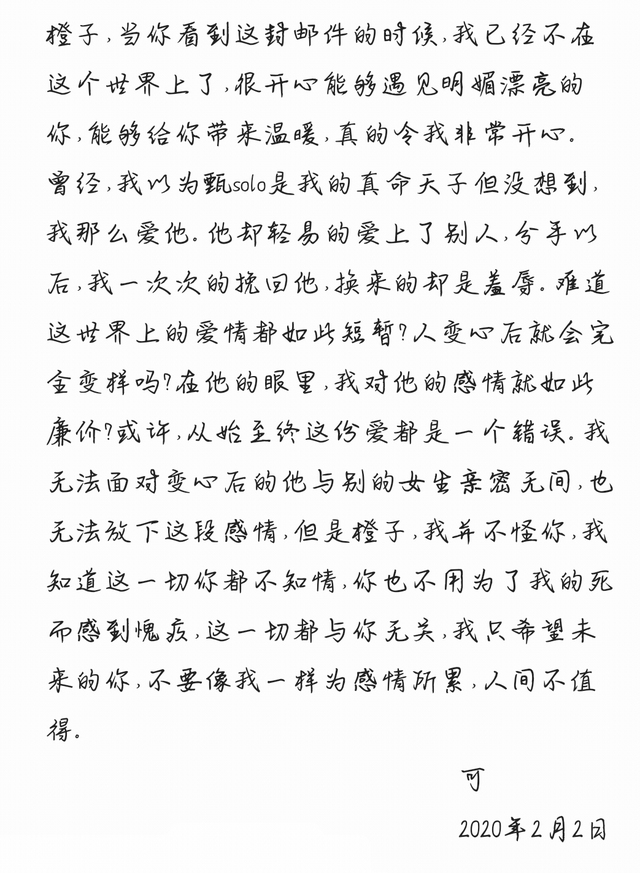 橙子,当你看到这封邮件的时候,我已经不在
这个世界上了,很开心能够遇见明媚漂亮的
你,能够给你带来温暖,真的令我非常开心。
曾经,我以为甄solo是我的真命天子但没想到,
我那么爱他。他却轻易的爱上了别人,分手以
后,我一次次的挽回他,换来的却是羞辱。难道
这世界上的爱情都如此短暂?人变心后就会完
全变样吗?在他的眼里,我对他的感情就如此
廉价?或许,从始至终这份爱都是一个错误。我
无法面对变心后的他与别的女生亲密无间,也
无法放下这段感情,但是橙子,我并不怪你,我
知道这一切你都不知情,你也不用为了我的死
而感到愧疚,这一切都与你无关,我只希望未
来的你,不要像我一样为感情所累,人间不值
得。
可
2020年2月2日